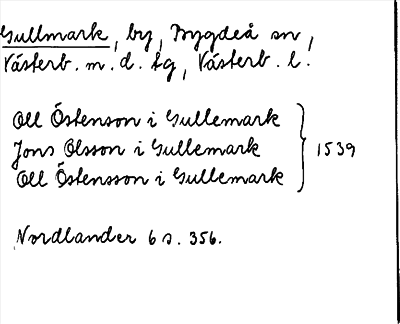 Gullmark, by, Bygdeå sn,
Västerb. m. d. tg, Västerb. l.
Oll Östenson i Gullemark
Jons Olsson i Gullemark
Oll Östensson i Gullemark
1539
Nordlander 6 s. 356.